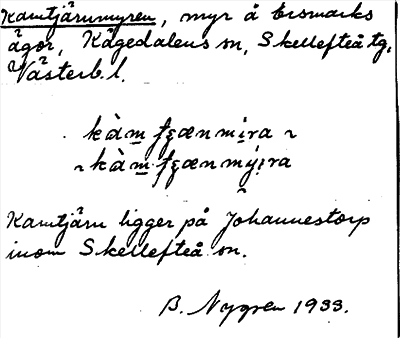 Kamtjärnmyren, myr å Ersmarks
ägor, Kågedalens sn, Skellefteå tg,
Västerb. l.
kàm̲ f̨ȩænmi̲ra ~
~ kàm̲ f̨ȩænmýi̲ra
Kamtjärn ligger på Johannestorp
inom Skellefteå sn.
B. Nygren 1933.